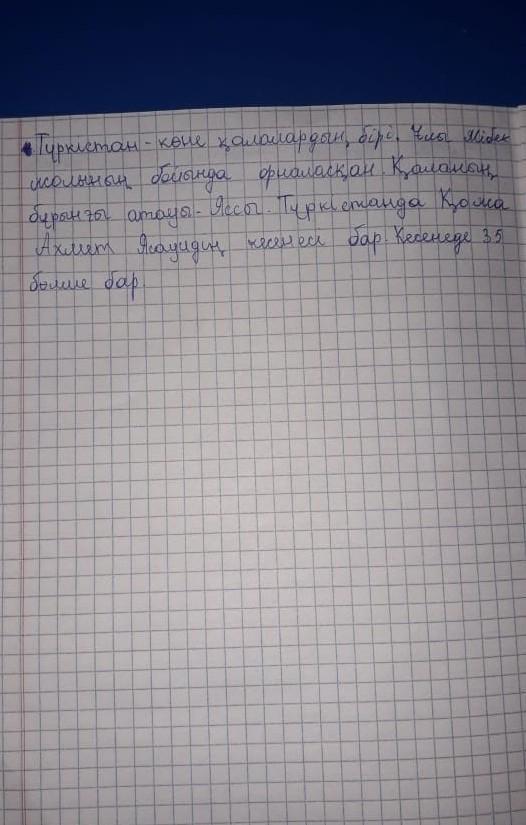 Түркістан - көне қалалардың бірі. Ұлы Жібек
жолының бойында орналасқан. Қаланың
бұрынғы атауы - Яссы. Түркістанда Қожа
Ахмет Ясауидің кесенесі бар. Кесенеде 35
бөлме бар.